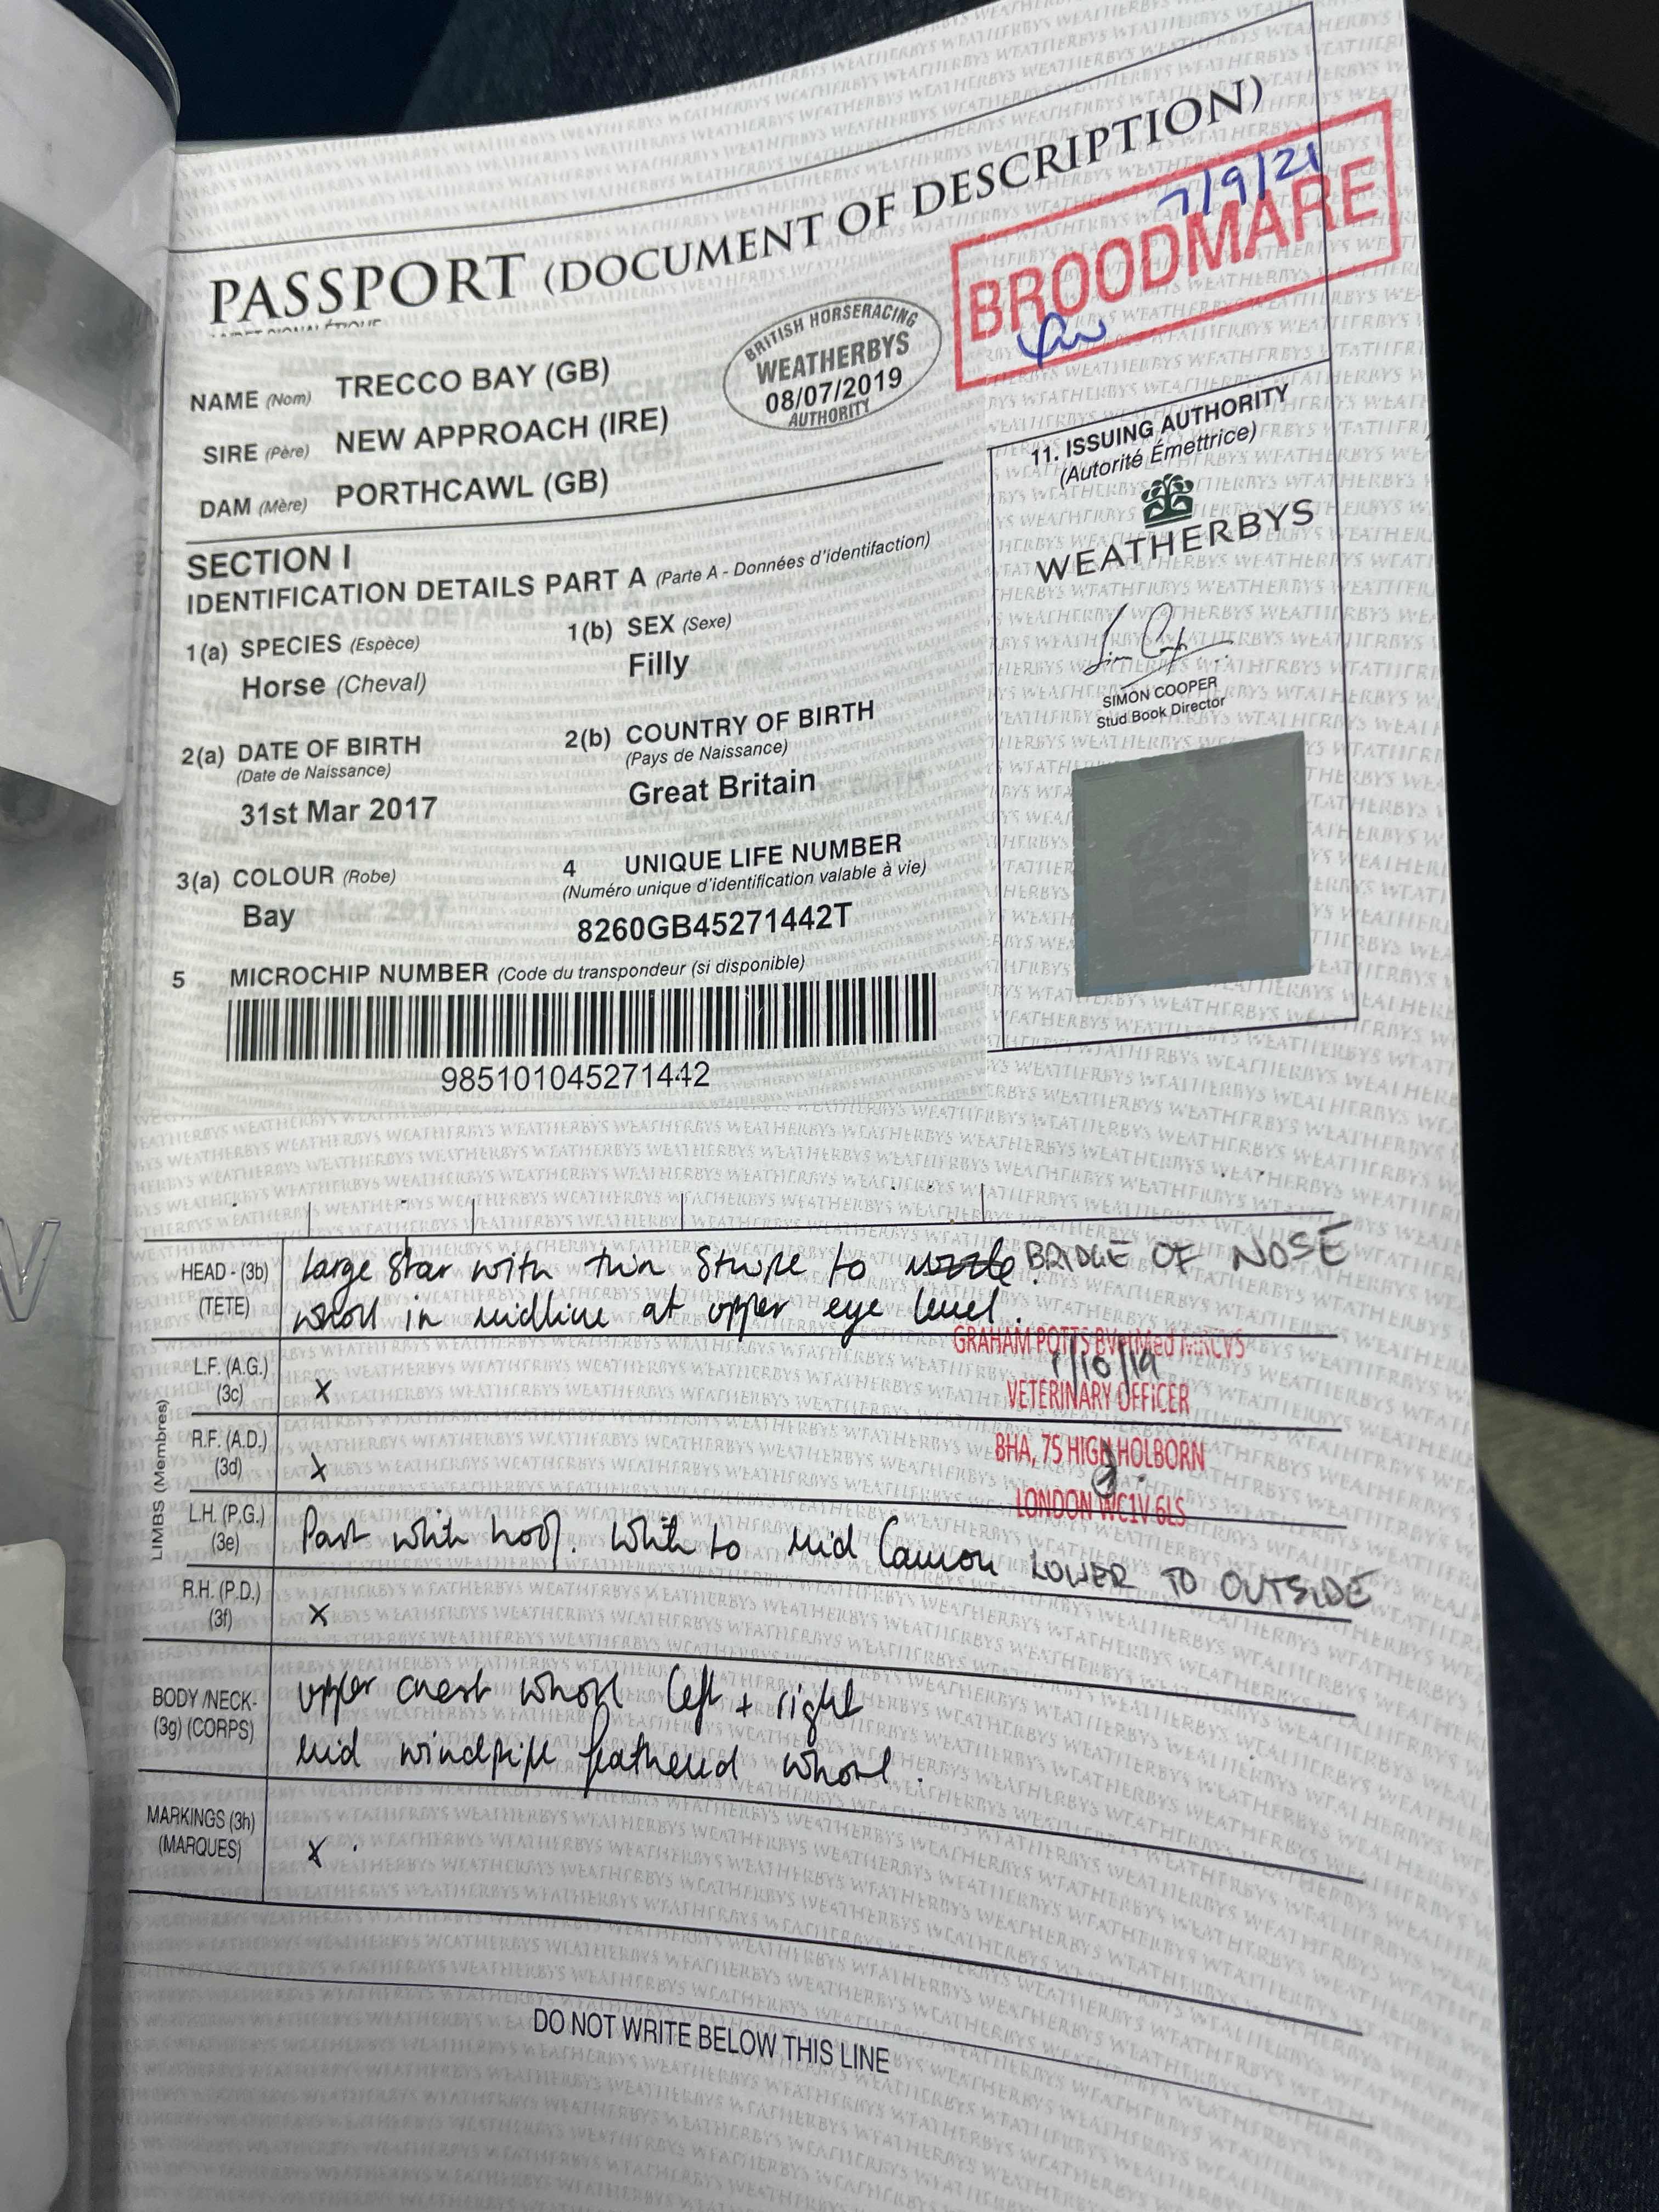 PASSPORT (DOCUMENT OF DESCRIPTION)
7/9/21
BROODMARE
NAME (Nom) TRECCO BAY (GB)
SIRE (Père) NEW APPROACH (IRE)
DAM (Mère) PORTHCAWL (GB)
BRITISH HORSERACING
WEATHERBYS
08/07/2019
AUTHORITY
11. ISSUING AUTHORITY
(Autorité Émettrice)
WEATHERBYS
SIMON COOPER
Stud Book Director
SECTION I
IDENTIFICATION DETAILS PART A (Parte A - Données d'identifaction)
1(a) SPECIES (Espèce)
Horse (Cheval)
1(b) SEX (Sexe)
Filly
2(a) DATE OF BIRTH
(Date de Naissance)
31st Mar 2017
2(b) COUNTRY OF BIRTH
(Pays de Naissance)
Great Britain
3(a) COLOUR (Robe)
Bay
4 UNIQUE LIFE NUMBER
(Numéro unique d'identification valable à vie)
8260GB45271442T
5 MICROCHIP NUMBER (Code du transpondeur (si disponible)
985101045271442
HEAD - (3b) Large Star with thin Stripe to BRIDGE OF NOSE
(TETE) whorl in midline at upper eye level.
GRAHAM POTTS BVetMed MRCVS
1/10/19
VETERINARY OFFICER
BHA, 75 HIGH HOLBORN
LONDON WC1V 6LS
LIMBS (Membres)
L.F. (A.G.)
(3c) X
R.F. (A.D.)
(3d) X
L.H. (P.G.)
(3e) Part white hoof. White to mid Cannon LOWER TO OUTSIDE
R.H. (P.D.)
(3f) X
BODY/NECK- upper crest whorl left + right
(3g) (CORPS) mid windpipe feathered whorl.
MARKINGS (3h)
(MARQUES) X
DO NOT WRITE BELOW THIS LINE